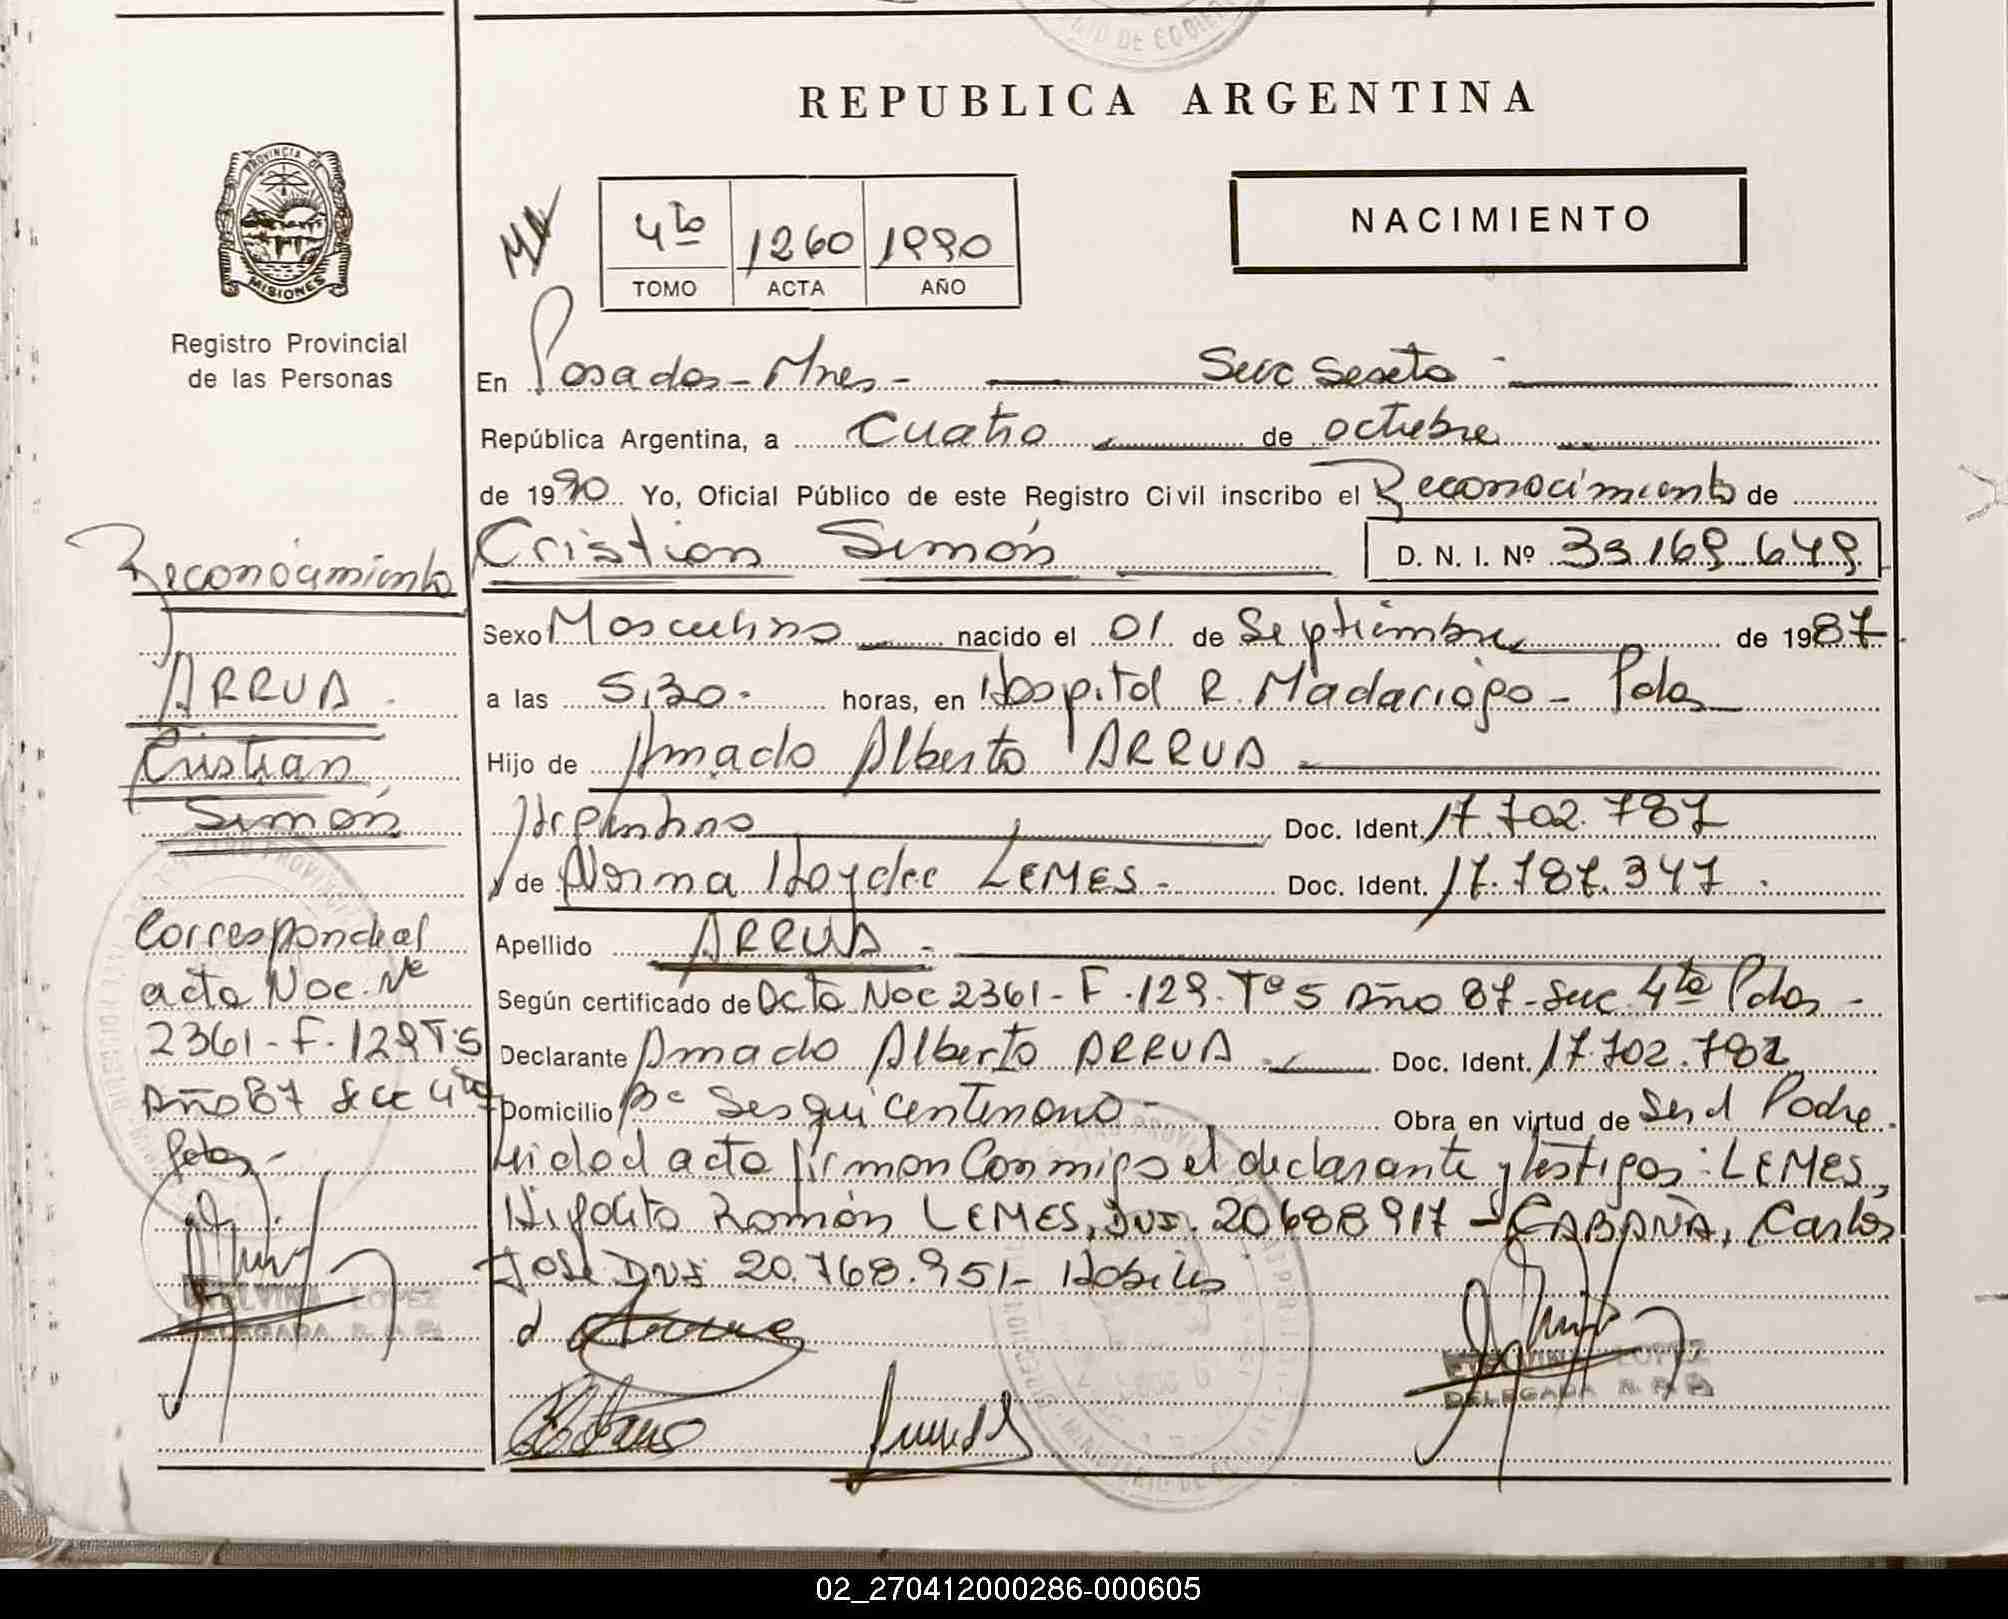 REPUBLICA ARGENTINA
PROVINCIA DE
MISIONES
Registro Provincial
de las Personas
4to 1260 1990
TOMO ACTA AÑO
NACIMIENTO
En Posadas - Mnes - Secc Sexta -
República Argentina, a cuatro de octubre
de 1990 Yo, Oficial Público de este Registro Civil inscribo el Reconocimiento de
Cristian Simón D. N. I. Nº 33.169.649
Sexo Masculino nacido el 01 de Septiembre de 1987
a las 5,30. horas, en Hospital R. Madariaga - Pdas
Hijo de Amado Alberto ARRUA
Argentino Doc. Ident. 17.702.787
y de Norma Haydee LEMES - Doc. Ident. 17.787.347.
Apellido ARRUA -
Según certificado de Acta Nac 2361 - F. 129. Tº 5 Año 87 - Secc 4ta Pdas -
Declarante Amado Alberto ARRUA Doc. Ident. 17.702.787
Domicilio Bº Sesquicentenario - Obra en virtud de Ser el Padre.
Leída el acta firman conmigo el declarante y testigos: LEMES,
Hipólito Ramón LEMES, DNI. 20688917 - CABAÑA, Carlos
José DNI 20.768.951 - Hábiles
Reconocimiento
ARRUA.
Cristian
Simón
Corresponde al
acta Nac. Nº
2361 - F. 129 T. 5
Año 87 Secc 4ta
Pdas -
LOPEZ
DELEGADA
LOPEZ
DELEGADA
02_270412000286-000605